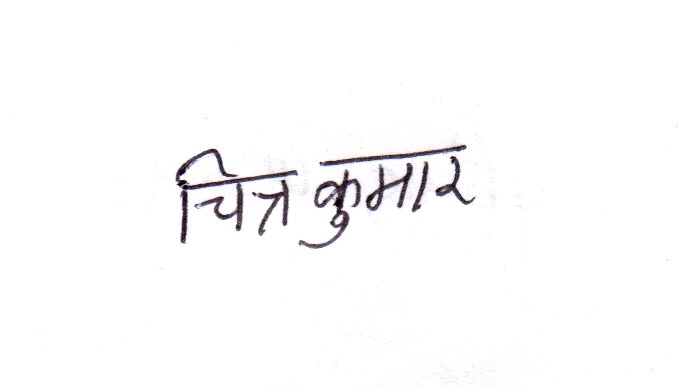 चित्र कुमार